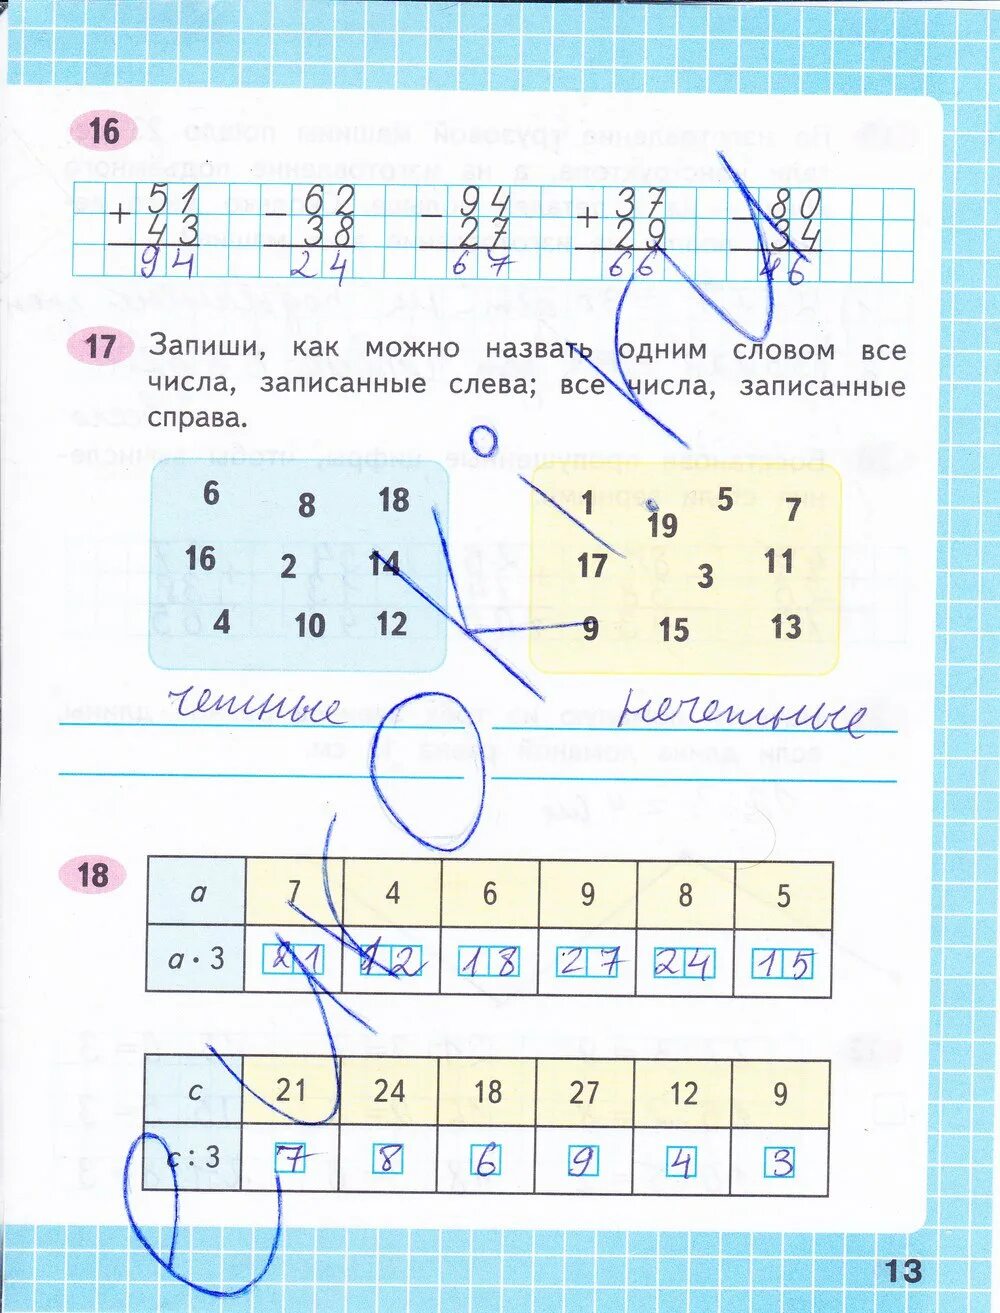 16
+ 51 − 62 − 94 + 37 − 80
43 38 27 29 34
94 24 67 66 46
17 Запиши, как можно назвать одним словом все
числа, записанные слева; все числа, записанные
справа.
6 8 18 1 19 5 7
16 2 14 17 3 11
4 10 12 9 15 13
четные нечетные
18
a 7 4 6 9 8 5
a · 3 21 12 18 27 24 15
c 21 24 18 27 12 9
c : 3 7 8 6 9 4 3
13